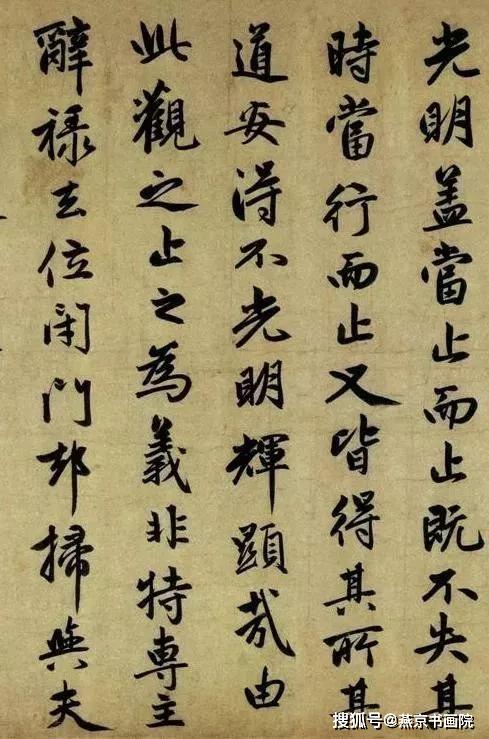 光明盖當止而止既不失其
時當行而止又皆得其所其
道安得不光明輝顯哉由
此觀之止之為義非特專主
辭祿去位閉門却掃與夫
搜狐号@燕京书画院